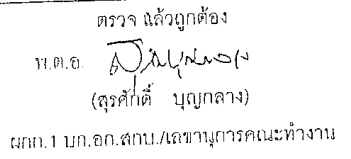 ตรวจ แล้วถูกต้อง
พ.ต.อ.
(สุรศักดิ์ บุญกลาง)
ผกก.1 บก.อก.สกบ./เลขานุการคณะทำงาน